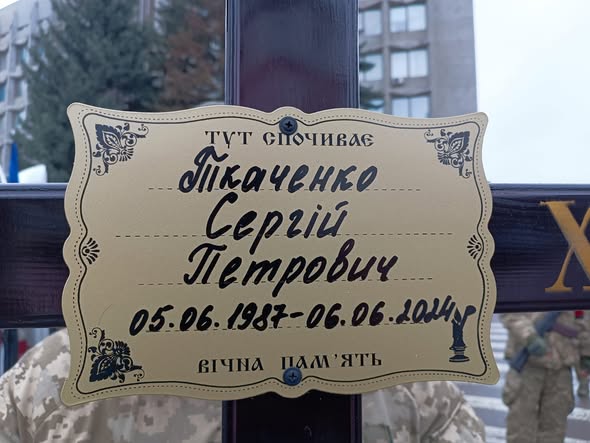 ТУТ СПОЧИВАЄ
Ткаченко
Сергій
Петрович
05.06.1987-06.06.2024
ВІЧНА ПАМ'ЯТЬ
Х